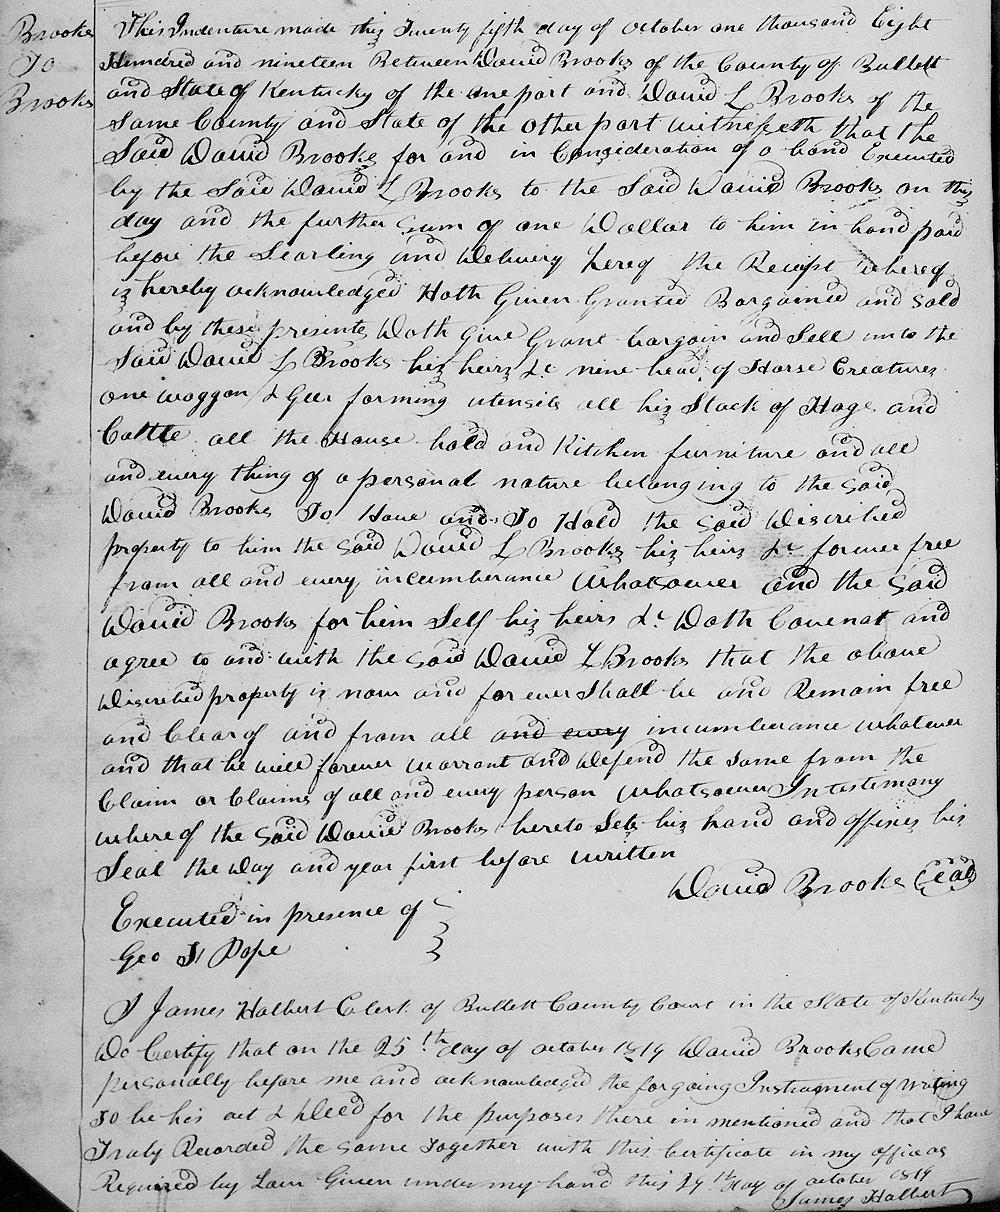 Brooks
To
Brooks
This Indenture made this Twenty fifth day of October one thousand Eight
Hundred and nineteen Between David Brooks of the County of Bullett
and State of Kentucky of the one part and David L Brooks of the
Same County and State of the other part witnesseth that the
Said David Brooks for and in Consideration of a bond Executed
by the Said David L Brooks to the Said David Brooks on this
day and the further Sum of one Dollar to him in hand paid
before the Searling and Delivery hereof the Receipt whereof
is hereby acknowledged Hath Given Granted Bargained and Sold
and by these presents Doth Give Grant bargain and Sell unto the
Said David L Brooks his heirs &c nine head of Horse Creatures
one waggon & Geer farming utensils all his Stock of Hogs and
Cattle all the House hold and Kitchen furniture and all
and every thing of a personal nature belonging to the Said
David Brooks To Have and To Hold the Said Discribed
property to him the Said David L Brooks his heirs &c forever free
from all and every incumberance whatsoever and the Said
David Brooks for him Self his heirs &c Doth Covenat and
agree to and with the Said David L Brooks that the above
Discribed property is now and forever Shall be and Remain free
and Clear of and from all and every incumberance whatever
and that he will forever warrant and Defend the Same from the
Claim or Claims of all and every person whatsoever In testimony
where of the Said David Brooks hereto Sets his hand and affixes his
Seal the Day and year first before written
David Brooks Seal
Executed in presence of
Geo F Pope
I James Halbert Clerk of Bullett County Court in the State of Kentucky
Do Certify that on the 25th day of october 1819 David Brooks Came
personally before me and acknowledged the forgoing Instrument of writing
To be his act & Deed for the purposes there in mentioned and that I have
Truly Recorded the Same Together with this Certificate in my office as
Required by Law Given under my hand this 29th day of october 1819
James Halbert